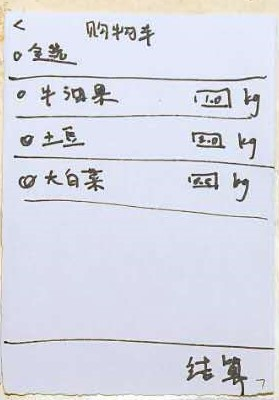 < 购物车
全选
牛油果 1.0 kg
土豆 2.0 kg
大白菜 kg
结算